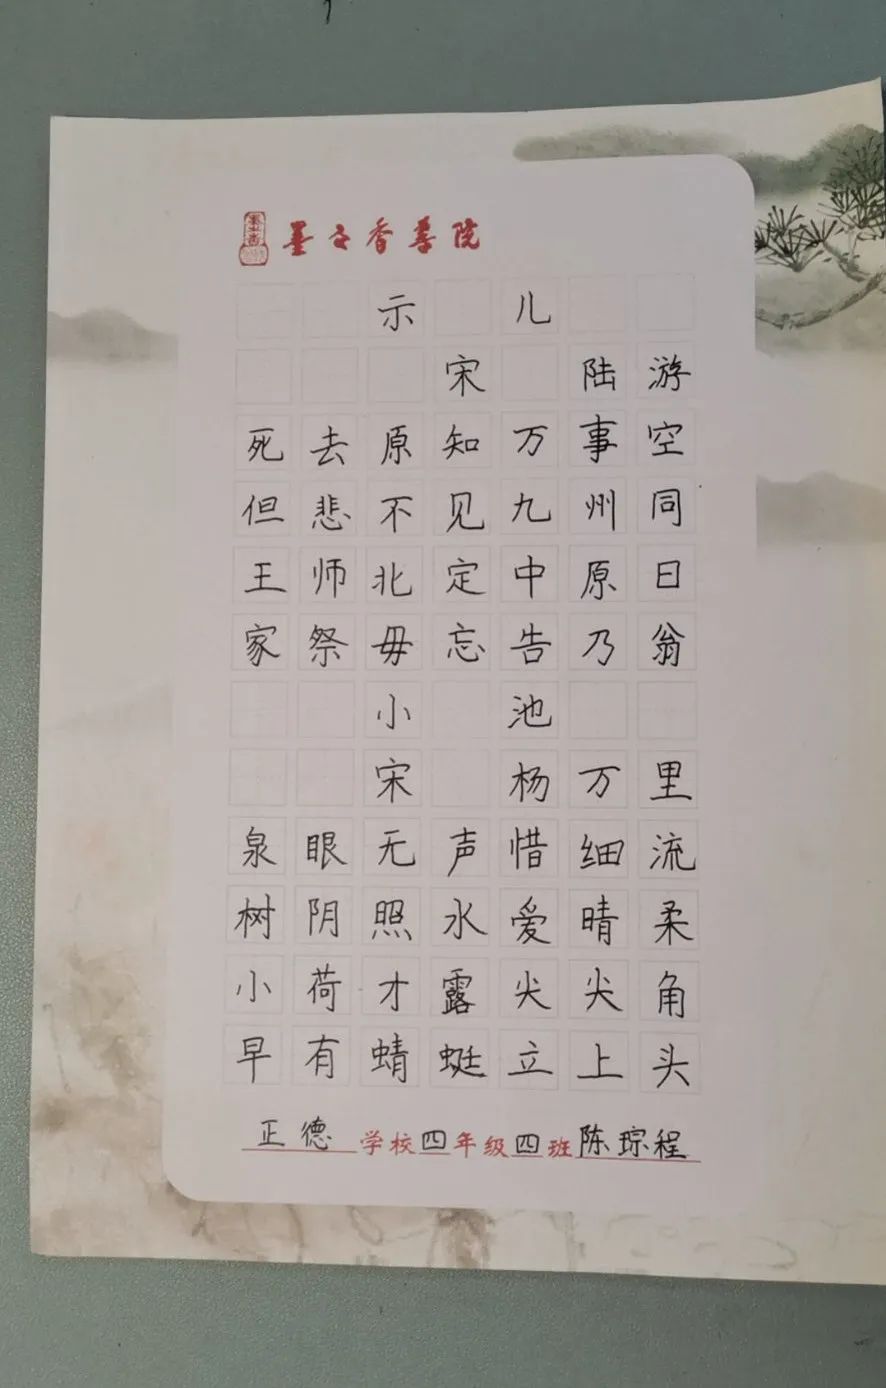 墨之香书院
示儿
宋 陆游
死去原知万事空
但悲不见九州同
王师北定中原日
家祭毋忘告乃翁
小池
宋 杨万里
泉眼无声惜细流
树阴照水爱晴柔
小荷才露尖尖角
早有蜻蜓立上头
正德学校四年级四班陈琮程